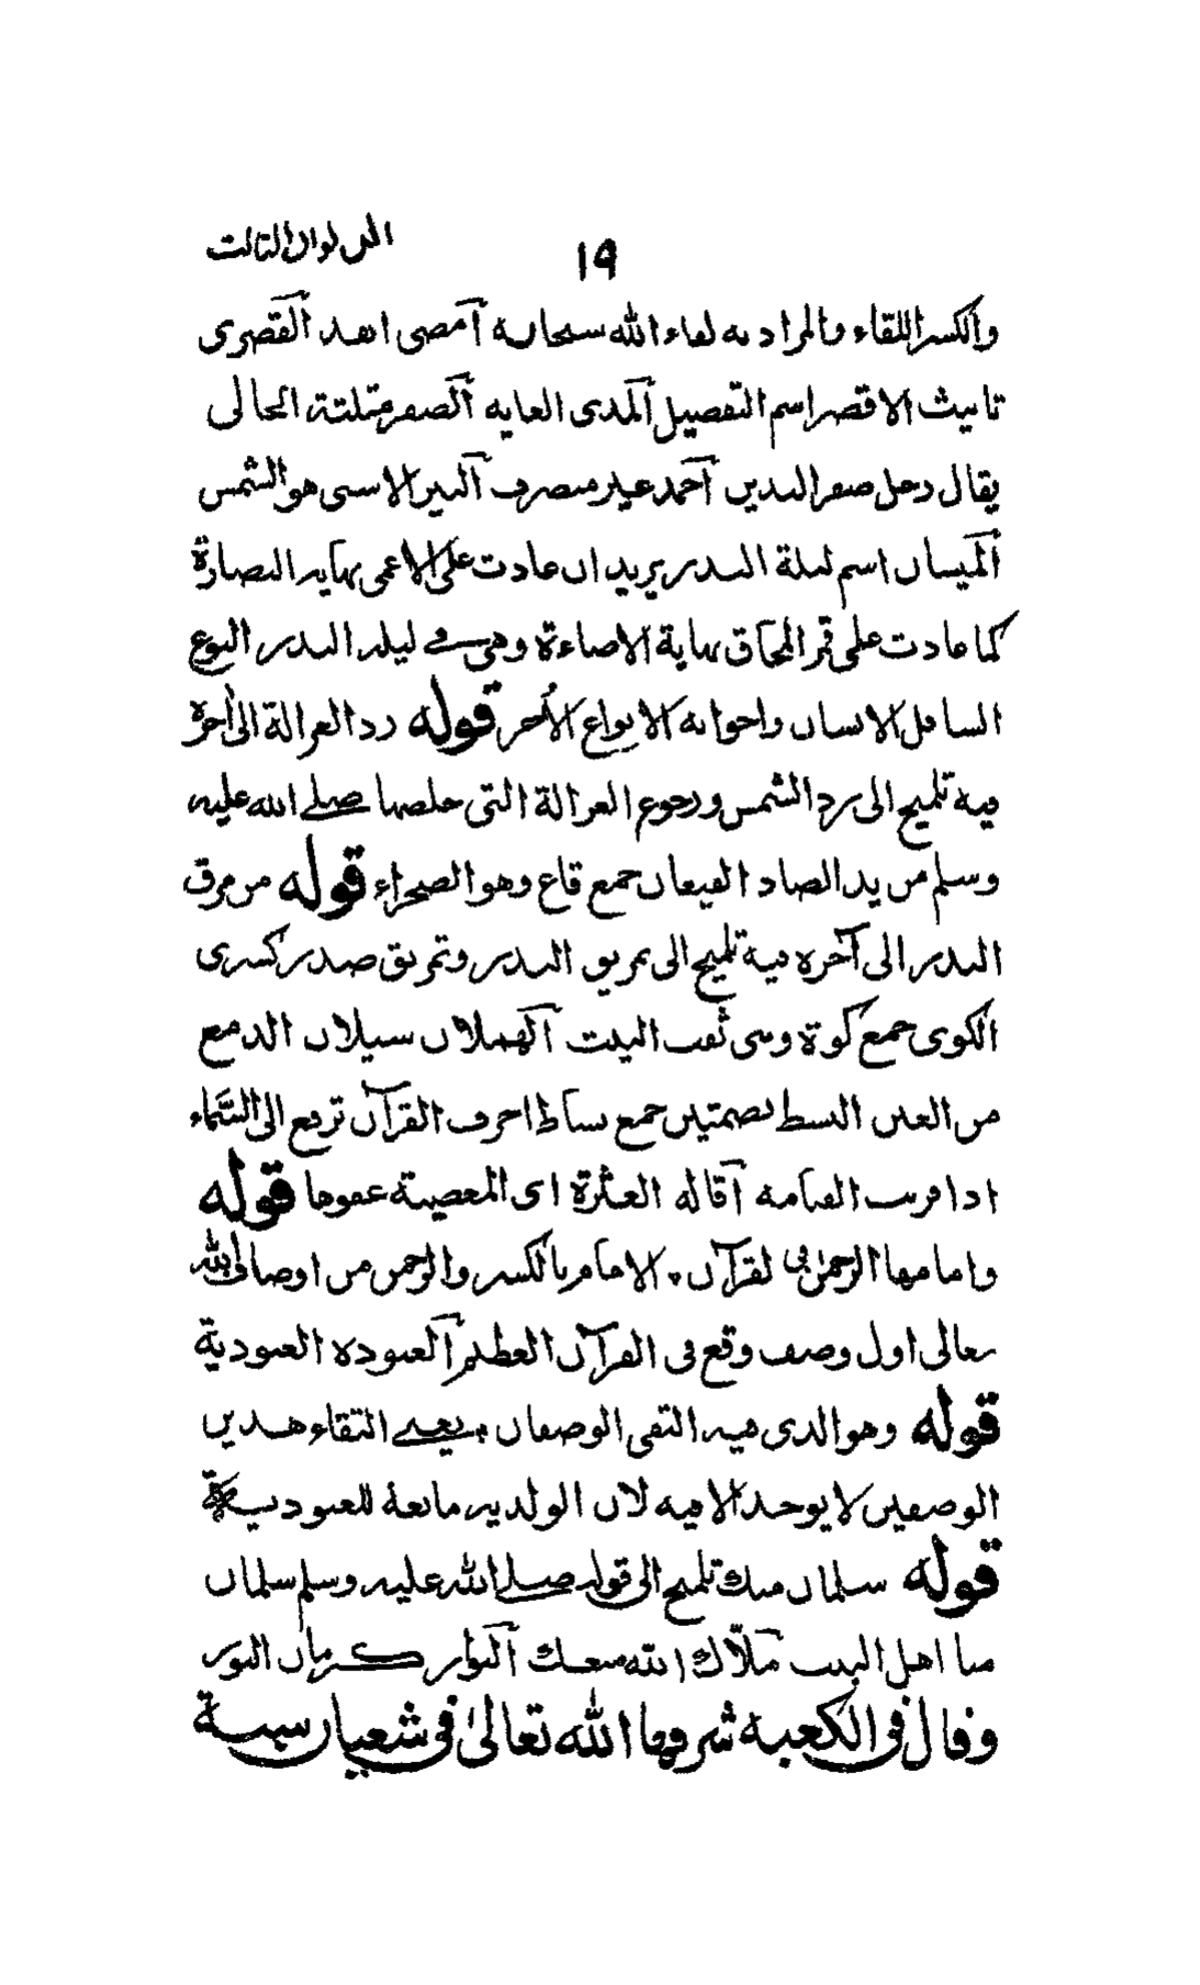 الديوان الثالث
١٩
والكسر اللقاء والمراد به لقاء الله سبحانه آمضى انفذ القصرى
تانيث الاقصر اسم التفضيل المدى الغايه الصفر مثلثة الخالى
يقال رجل صفر اليدين احمد غير منصرف النير الاسنى هو الشمس
الميسان اسم لليلة البدر يريد ان عادت على الاعمى نهاية البصارة
كما عادت على قمر المحاق نهاية الاضاءة وهى فى ليلة البدر النوع
السافل الانسان واخواته الانواع الأخر قوله رد الغزالة الى آخره
فيه تلميح الى رد الشمس ورجوع الغزالة التى خلصها صلى الله عليه
وسلم من يد الصياد القيعان جمع قاع وهو الصحراء قوله من مزق
البدر الى آخره فيه تلميح الى تمزيق البدر وتمزيق صدر كسرى
الكوى جمع كوة وهى ثقب البيت الهملان سيلان الدمع
من العين البسط بضمتين جمع بساط احرف القرآن ترفع الى السماء
اذا قربت القيامة آقالة العثرة اى المعصية عفوها قوله
وامامها الرحمن فى القرآن ٠ الامام بالكسر والرحمن من اوصاف الله
تعالى اول وصف وقع فى القرآن العظيم العبوده العبودية
قوله وهو الذى فيه التقى الوصفان ٠ يعنى التقاء هذين
الوصفين لا يوجد الا فيه لان الولدية مانعة للعبودية
قوله سلمان منك تلميح الى قوله صلى الله عليه وسلم سلمان
منا اهل البيت ملآك الله متعك النوار كرمان النور
وقال فى الكعبة شرفها الله تعالى فى شعبان سنة